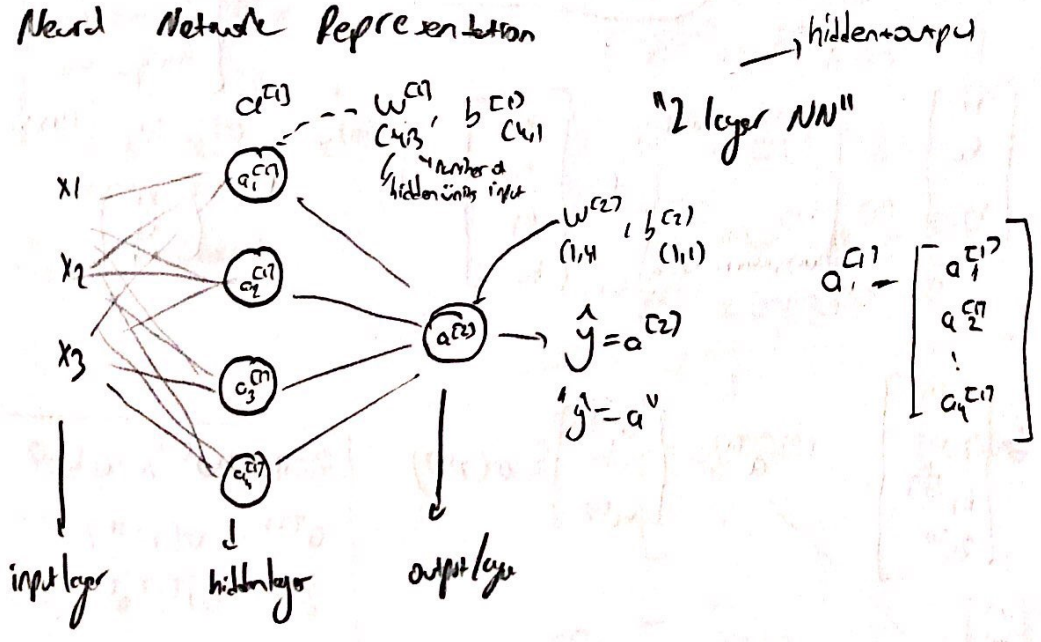 Neural Network Representation
hidden+output
"2 layer NN"
a^[1]
w^[1], b^[1]
(4,3) (4,1)
number of
hidden units input
x1
x2
x3
a_1^[1]
a_2^[1]
a_3^[1]
a_4^[1]
w^[2], b^[2]
(1,4) (1,1)
a^[2]
ŷ = a^[2]
"ŷ = a"
a_1^[1] = [ a_1^[1]
a_2^[1]
⋮
a_4^[1] ]
input layer
hidden layer
output layer